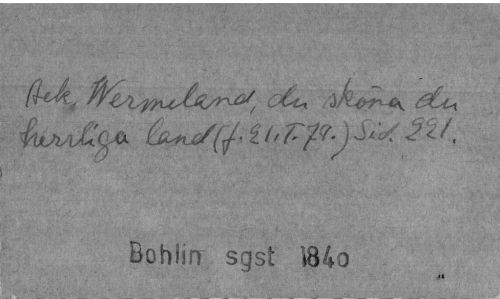 Ack, Wermeland, du sköna du
herrliga land (f. 21. T. 79.) Sid. 221.
Bohlin sgst 1840